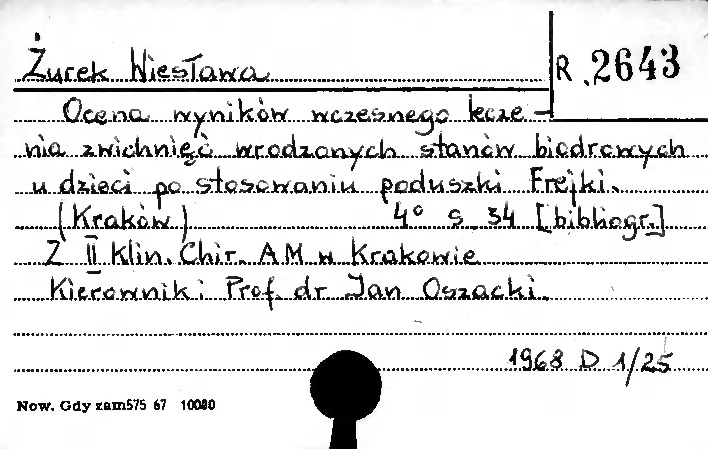 Żurek Wiesława
R. 2643
Ocena wyników wczesnego lecze-
nia zwichnięć wrodzonych stanów biodrowych
u dzieci po stosowaniu poduszki Frejki.
(Kraków) 4° s. 34 [bibliogr.]
Z II Klin. Chir. AM w Krakowie
Kierownik: Prof. dr Jan Oszacki.
1968 D 1/25
Now. Gdy zam575 67 10000